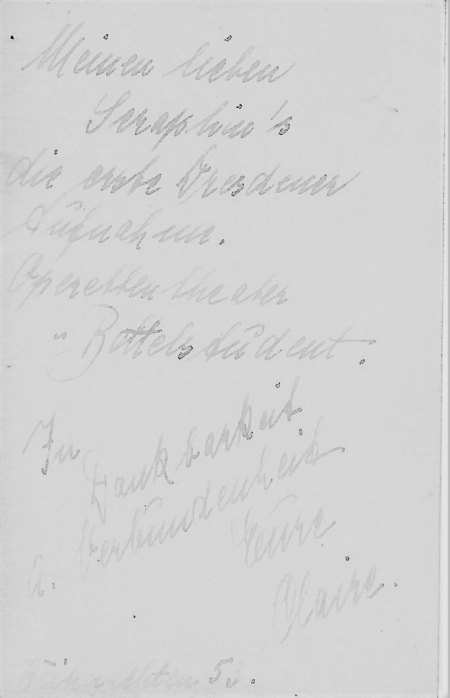 Meinen lieben
Seraphin's
die erste Dresdener
Aufnahme.
Operettentheater
"Bettelstudent".
In
Dankbarkeit
u. Verbundenheit
Eure
Claire.
Weihnachten 5